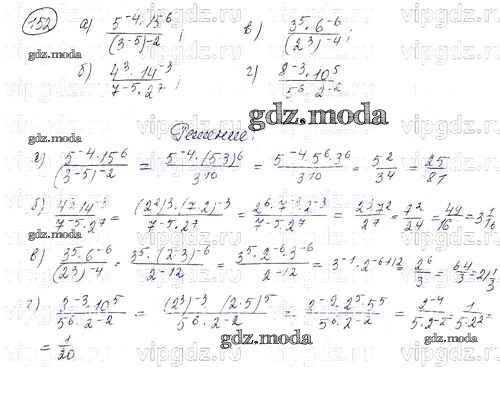 152 а) (5^-4 · 15^6)/((3^-5)^-2); в) (3^5 · 6^-6)/((2^3)^-4);
б) (4^3 · 14^-3)/(7^-5 · 2^7); г) (8^-3 · 10^5)/(5^6 · 2^-2)
gdz.moda
Решение:
а) (5^-4 · 15^6)/((3^-5)^-2) = (5^-4 · (5·3)^6)/(3^10) = (5^-4 · 5^6 · 3^6)/(3^10) = 5^2/3^4 = 25/81
б) (4^3 · 14^-3)/(7^-5 · 2^7) = ((2^2)^3 · (7·2)^-3)/(7^-5 · 2^7) = (2^6 · 7^-3 · 2^-3)/(7^-5 · 2^7) = (2^3 7^2)/(2^7) = 7^2/2^4 = 49/16 = 3 1/16
в) (3^5 · 6^-6)/((2^3)^-4) = (3^5 · (2·3)^-6)/(2^-12) = (3^5 · 2^-6 · 3^-6)/(2^-12) = 3^-1 · 2^-6+12 = 2^6/3 = 64/3 = 21 1/3
г) (8^-3 · 10^5)/(5^6 · 2^-2) = ((2^3)^-3 (2·5)^5)/(5^6 · 2^-2) = (2^-9 · 2^5 · 5^5)/(5^6 · 2^-2) = (2^-4)/(5 · 2^-2) = 1/(5·2^2) =
= 1/20
gdz.moda